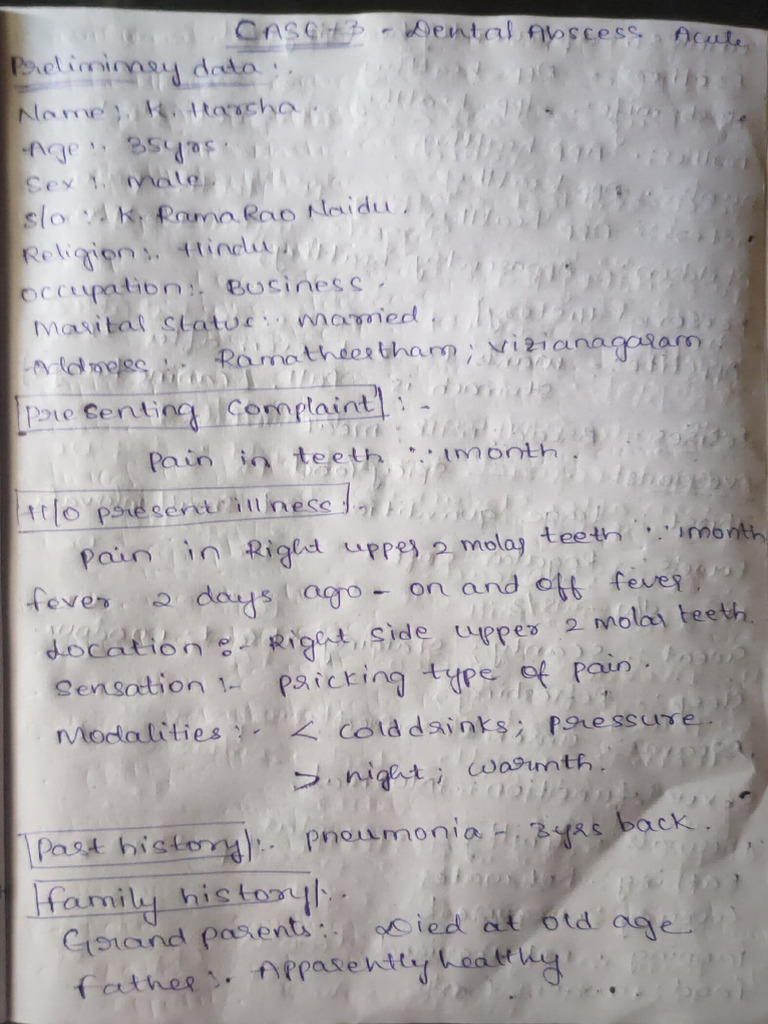 CASE-3 - Dental Abscess Acute
Preliminary data :.
Name :. K. Harsha.
Age :. 35yrs.
Sex :. Male.
S/o :. K. Rama Rao Naidu.
Religion :. Hindu.
Occupation :. Business.
Marital Status :. married.
Address :. Ramatheertham; Vizianagaram
Presenting Complaint :-
Pain in teeth ∵ 1month.
H/o present illness :.
Pain in Right upper 2 molar teeth ∵ 1month
fever 2 days ago - on and off fever.
Location :- Right side upper 2 molar teeth.
Sensation :- pricking type of pain.
Modalities :- < cold drinks; pressure.
> night; warmth.
Past history :. pneumonia - 3yrs back.
family history :.
Grand parents :. Died at old age
Father :. Apparently healthy